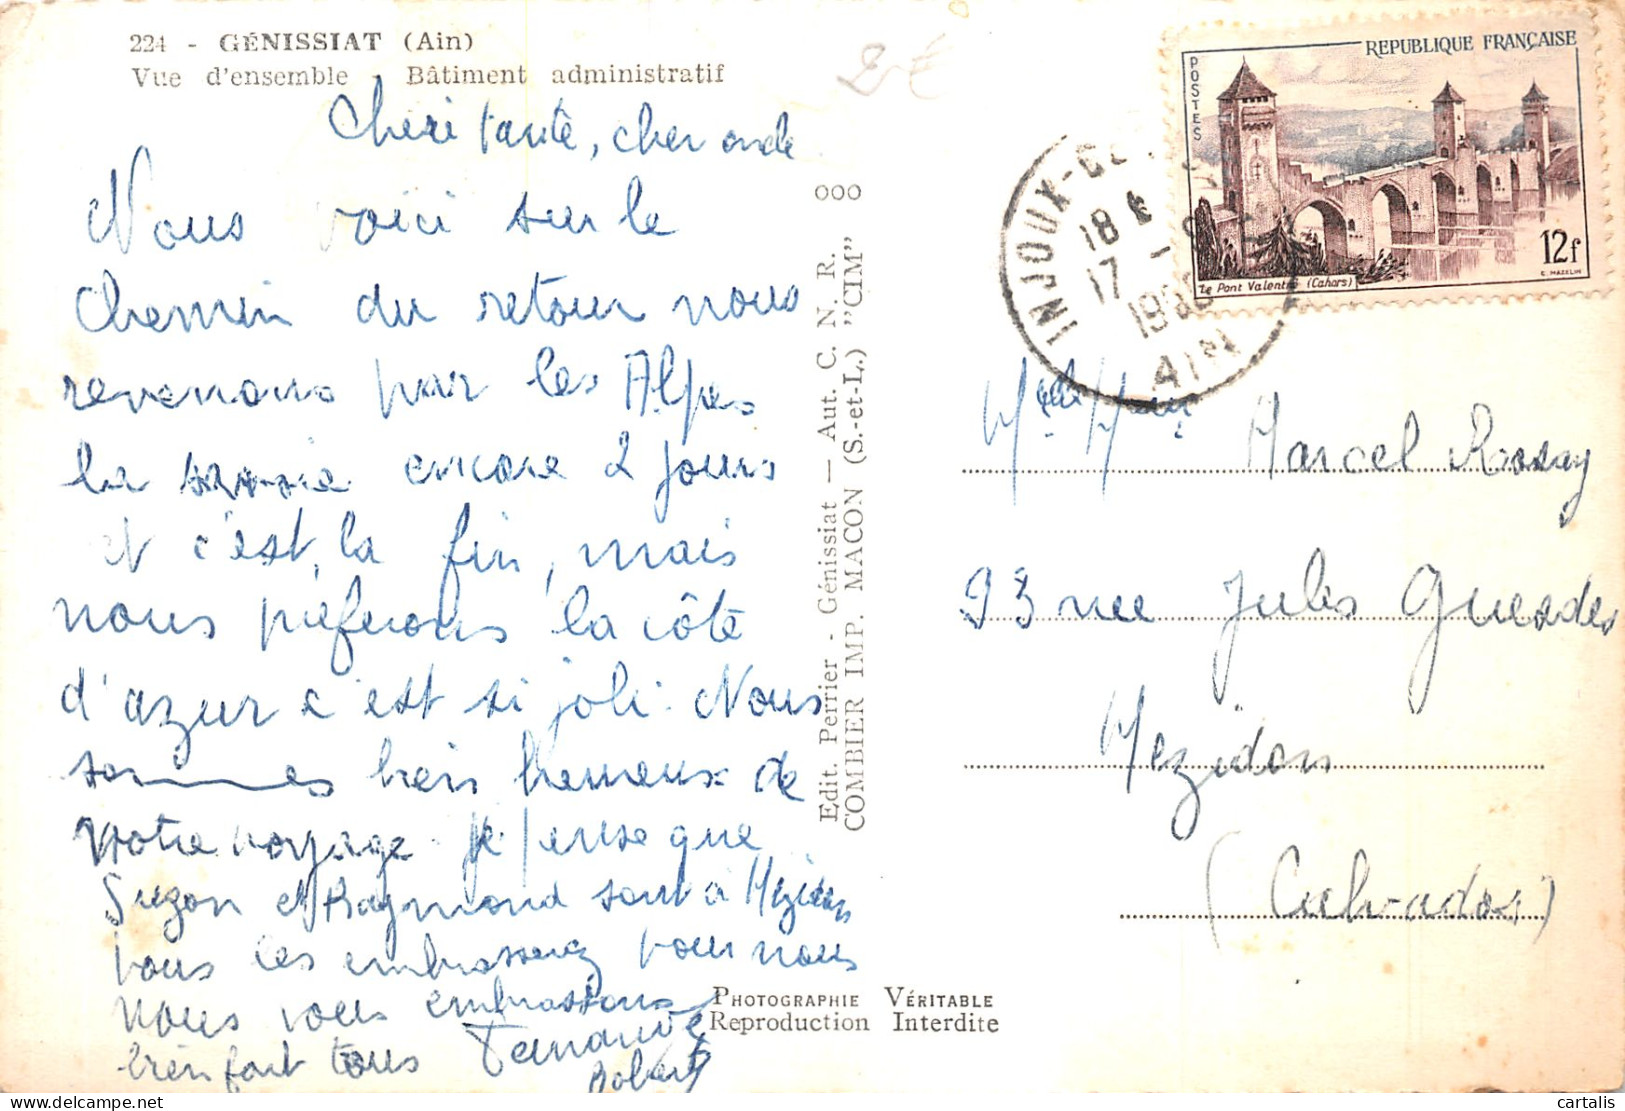 224 - GÉNISSIAT (Ain)
Vue d'ensemble Bâtiment administratif
2 €
Chéri tante, cher oncle
Nous voici sur le
chemin du retour nous
revenons par les Alpes
la savoie encore 2 jours
et c'est la fin, mais
nous préferons la côte
d'azur c'est si joli. Nous
sommes bien heureux de
notre voyage. Je pense que
Suzon et Raymond sont à Mézidon
vous les embrasserez pour nous
nous vous embrassons
bien fort tous
Fernande
Robert
Edit. Perrier - Génissiat — Aut. C. N. R. 000
COMBIER IMP. MACON (S.-et-L.) "CIM"
PHOTOGRAPHIE VÉRITABLE
Reproduction Interdite
REPUBLIQUE FRANÇAISE
POSTES
12f
Le Pont Valentré (Cahors)
C. MAZELIN
INJOUX-GE
18 H
17 - 9
AIN
Marcel Rosay
93 rue Jules Guesdes
Mezidon
(Calvados)
cartalis